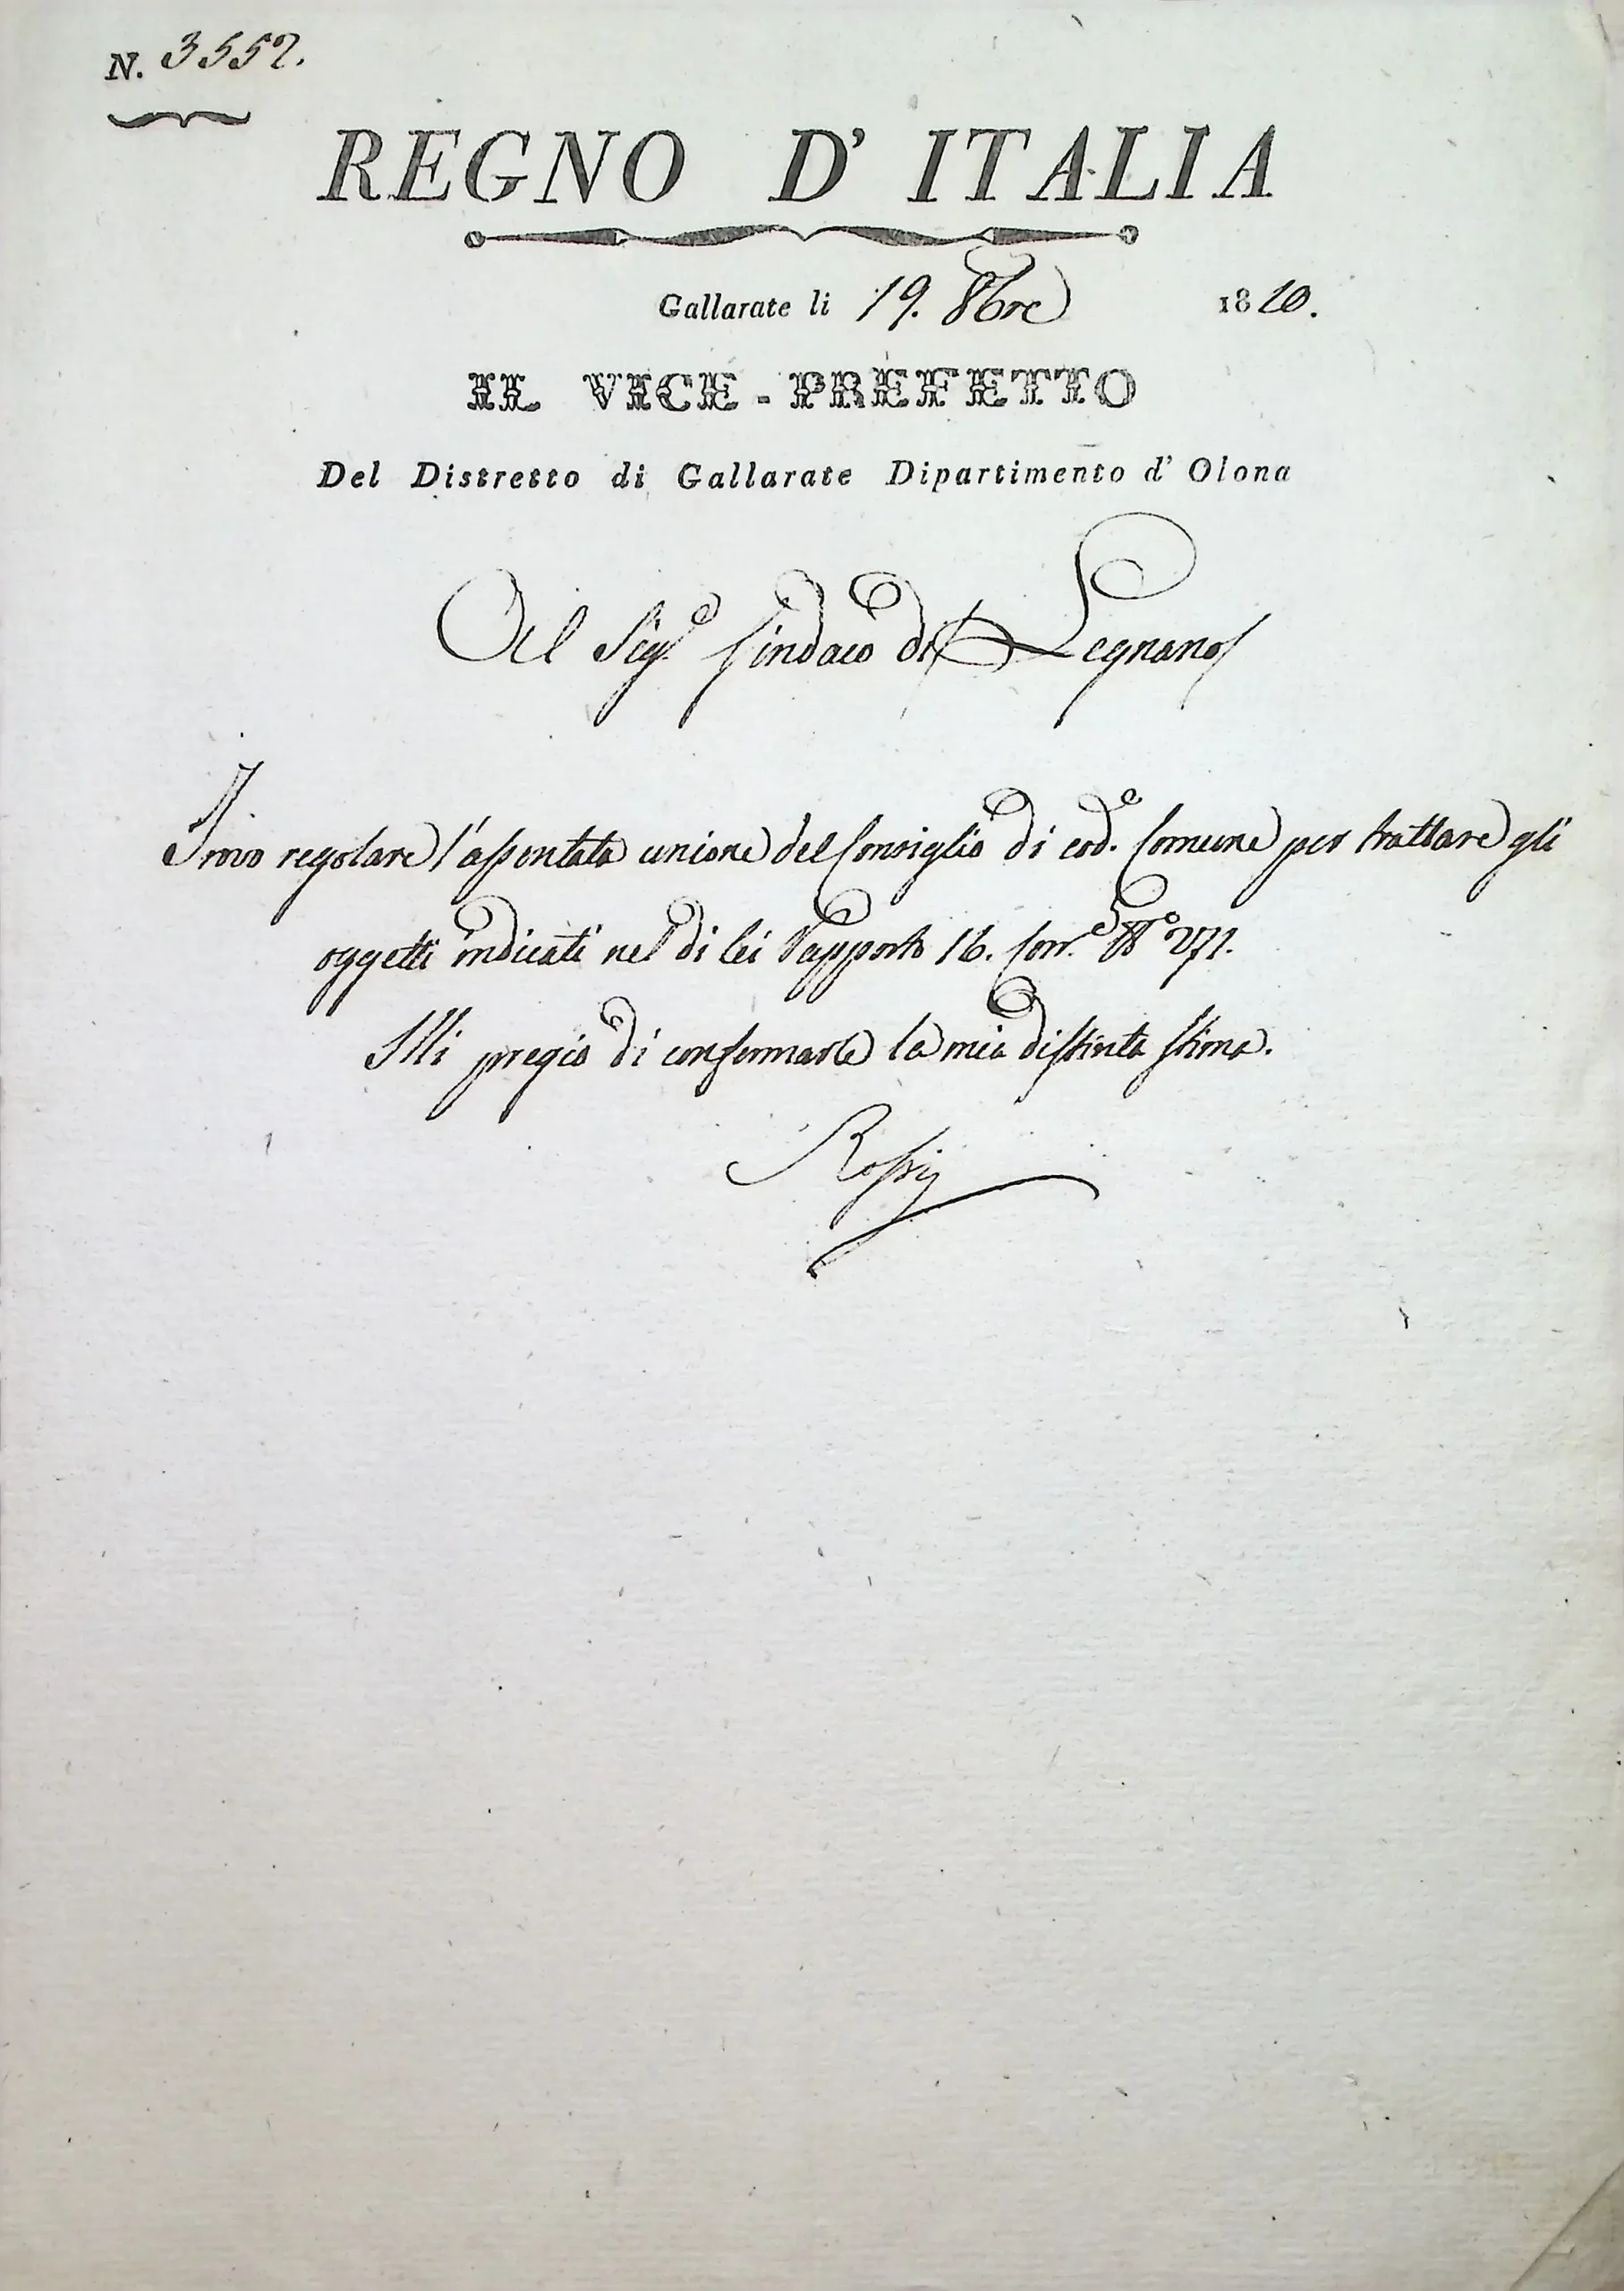 N. 3552.
REGNO D' ITALIA
Gallarate li 19. 8bre 1810.
IL VICE-PREFETTO
Del Distretto di Gallarate Dipartimento d' Olona
Al Sigr Sindaco di Legnano
Trovo regolare l'appuntata unione del Consiglio di code. Comune per trattare gli
oggetti indicati nel di lei Rapporto 16. corre No 271.
Mi pregio di confermarle la mia distinta stima.
Rossi